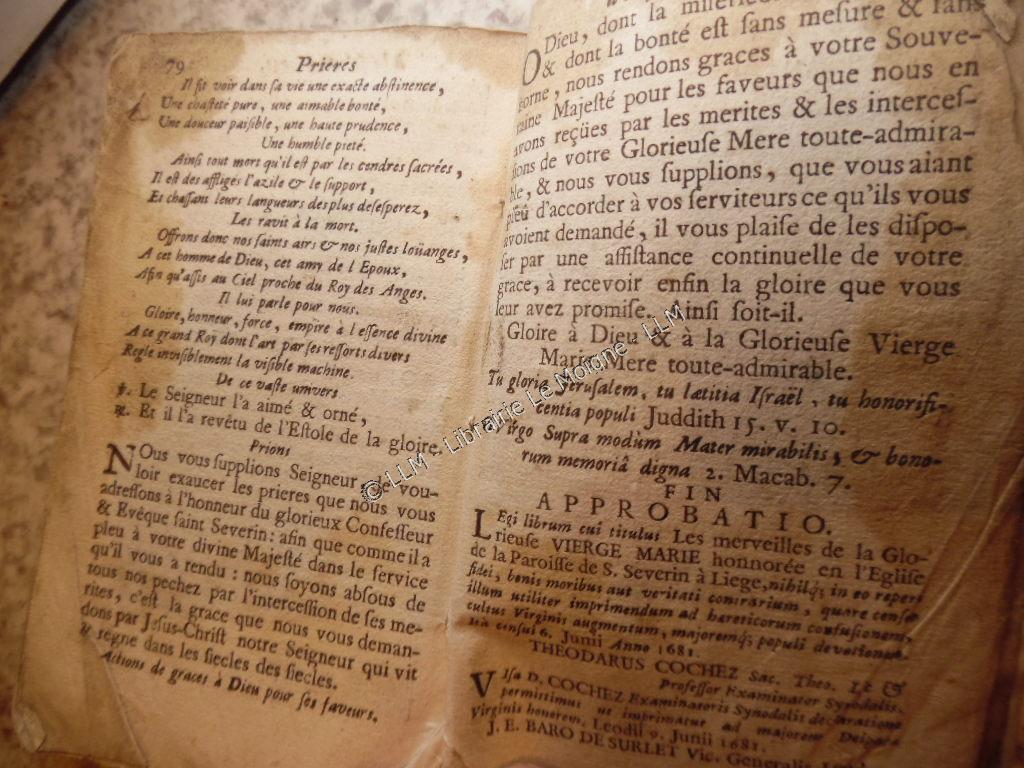 79 Prieres
Il fit voir dans ſa vie une exacte abſtinence,
Une chaſteté pure, une aimable bonté,
Une douceur paiſible, une haute prudence,
Une humble pieté.
Ainſi tout mort qu'il eſt par les cendres ſacrées,
Il eſt des affligés l'azile & le ſupport,
Et chaſſant leurs langueurs des plus deſeſperez,
Les ravit à la mort.
Offrons donc nos ſaints airs & nos juſtes loüanges,
A cet homme de Dieu, cet amy de l Epoux,
Afin qu'aſſis au Ciel proche du Roy des Anges.
Il lui parle pour nous.
Gloire, honneur, force, empire à l eſſence divine
A ce grand Roy dont l'art par ſes reſſorts divers
Regle inviſiblement la viſible machine.
De ce vaſte univers
℣. Le Seigneur l'a aimé & orné,
℟. Et il l'a revétu de l'Eſtole de la gloire.
Prions
NOus vous ſupplions Seigneur, de vou-
loir exaucer les prieres que nous vous
adreſſons à l'honneur du glorieux Confeſſeur
& Evéque ſaint Severin: afin que comme il a
pleu à votre divine Majeſté dans le ſervice
qu'il vous a rendu: nous ſoyons abſous de
tous nos pechez par l'interceſſion de ſes me-
rites, c'eſt la grace que nous vous deman-
dons par Jeſus-Chriſt notre Seigneur qui vit
& regne dans les ſiecles des ſiecles.
Actions de graces à Dieu pour ſes faveurs.
O Dieu, dont la
& dont la bonté eſt ſans meſure & ſans
borne, nous rendons graces à votre Souve-
raine Majeſté pour les faveurs que nous en
avons reçües par les merites & les interceſ-
ſions de votre Glorieuſe Mere toute-admira-
ble, & nous vous ſupplions, que vous aiant
pleû d'accorder à vos ſerviteurs ce qu'ils vous
avoient demandé, il vous plaiſe de les diſpo-
ſer par une aſſiſtance continuelle de votre
grace, à recevoir enfin la gloire que vous
leur avez promiſe. Ainſi ſoit-il.
Gloire à Dieu & à la Glorieuſe Vierge
Marie Mere toute-admirable.
Tu gloria Jeruſalem, tu lætitia Iſraël, tu honorifi-
centia populi Juddith 15. v. 10.
Virgo Supra modùm Mater mirabilis, & bono-
rum memoriâ digna 2. Macab. 7.
FIN
APPROBATIO.
LEgi librum cui titulus Les merveilles de la Glo-
rieuſe VIERGE MARIE honnorée en l'Egliſe
de la Paroiſſe de S. Severin à Liege, nihilq; in eo reperi
fidei, bonis moribus aut veritati contrarium, quare cenſeo
illum utiliter imprimendum ad hæreticorum confuſionem,
cultus Virginis augmentum, majoremq; populi devotionem.
Ita cenſui 6. Junii Anno 1681.
THEODARUS COCHEZ Sac. Theo. &
Profeſſor Examinator Synodalis.
VIſa D. COCHEZ Examinatoris Synodalis declaratione
permittimus ut imprimatur ad majorem Deiparæ
Virginis honorem, Leodii 9. Junii 1681.
J. E. BARO DE SURLET Vic. Generalis
© LLM - Librairie Le Moigne - LLM